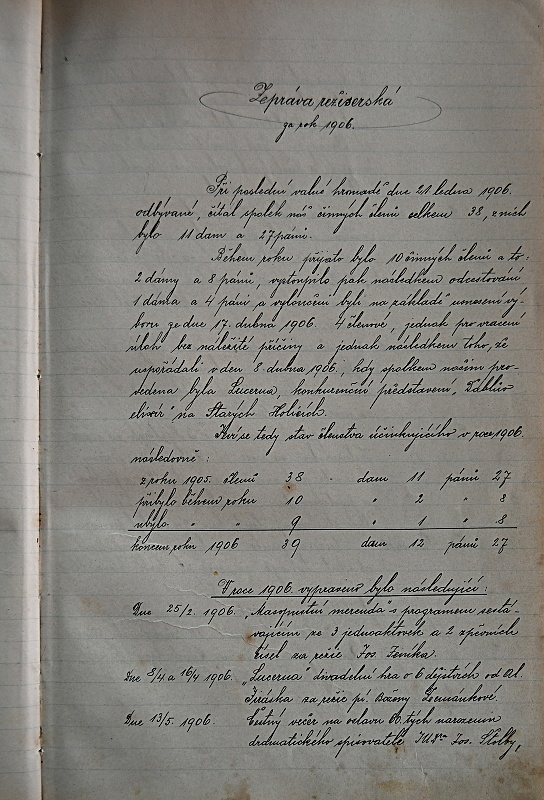 Zpráva režiserská
za rok 1906.
Při poslední valné hromadě dne 21 ledna 1906.
odbývané, čítal spolek náš činných členů celkem 38, z nich
bylo 11 dam a 27 pánů.
Během roku přijato bylo 10 činných členů a to:
2 dámy a 8 pánů, vystoupilo pak následkem odcestování
1 dáma a 4 páni a vyloučeni byli na základě usnesení vý-
boru ze dne 17. dubna 1906. 4 členové, jednak pro vracení
úloh bez náležité příčiny a jednak následkem toho, že
uspořádali v den 8. dubna 1906., kdy spolkem naším pro-
vedena byla Lucerna, konkurenční představení „Ďáblův
elixír" na Starých Holicích.
Jeví se tedy stav členstva účinkujícího v roce 1906.
následovně:
z roku 1905. členů 38 dam 11 pánů 27
přibylo během roku 10 " 2 " 8
ubylo " " 9 " 1 " 8
koncem roku 1906 39 dam 12 pánů 27
V roce 1906. vypraveno bylo následující:
Dne 25/2. 1906. „Masopustní merenda" s programem sestá-
vajícím ze 3 jednoaktovek a 2 zpěvních
čísel za režie Jos. Zeníka.
Dne 8/4 a 16/4 1906. „Lucerna" divadelní hra o 6 dějstvích od Al.
Jiráska za režie pí. Boženy Zemánkové.
Dne 13/5. 1906. Čestný večer na oslavu 60. tých narozenin
dramatického spisovatele JUDra Jos. Štolby,